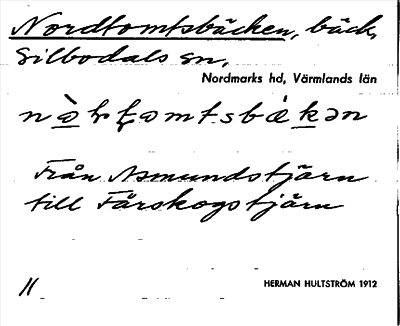 Nordtomtsbäcken, bäck,
Silbodals sn,
Nordmarks hd, Värmlands län
Från Asmundstjärn
till Fårskogstjärn
11
HERMAN HULTSTRÖM 1912